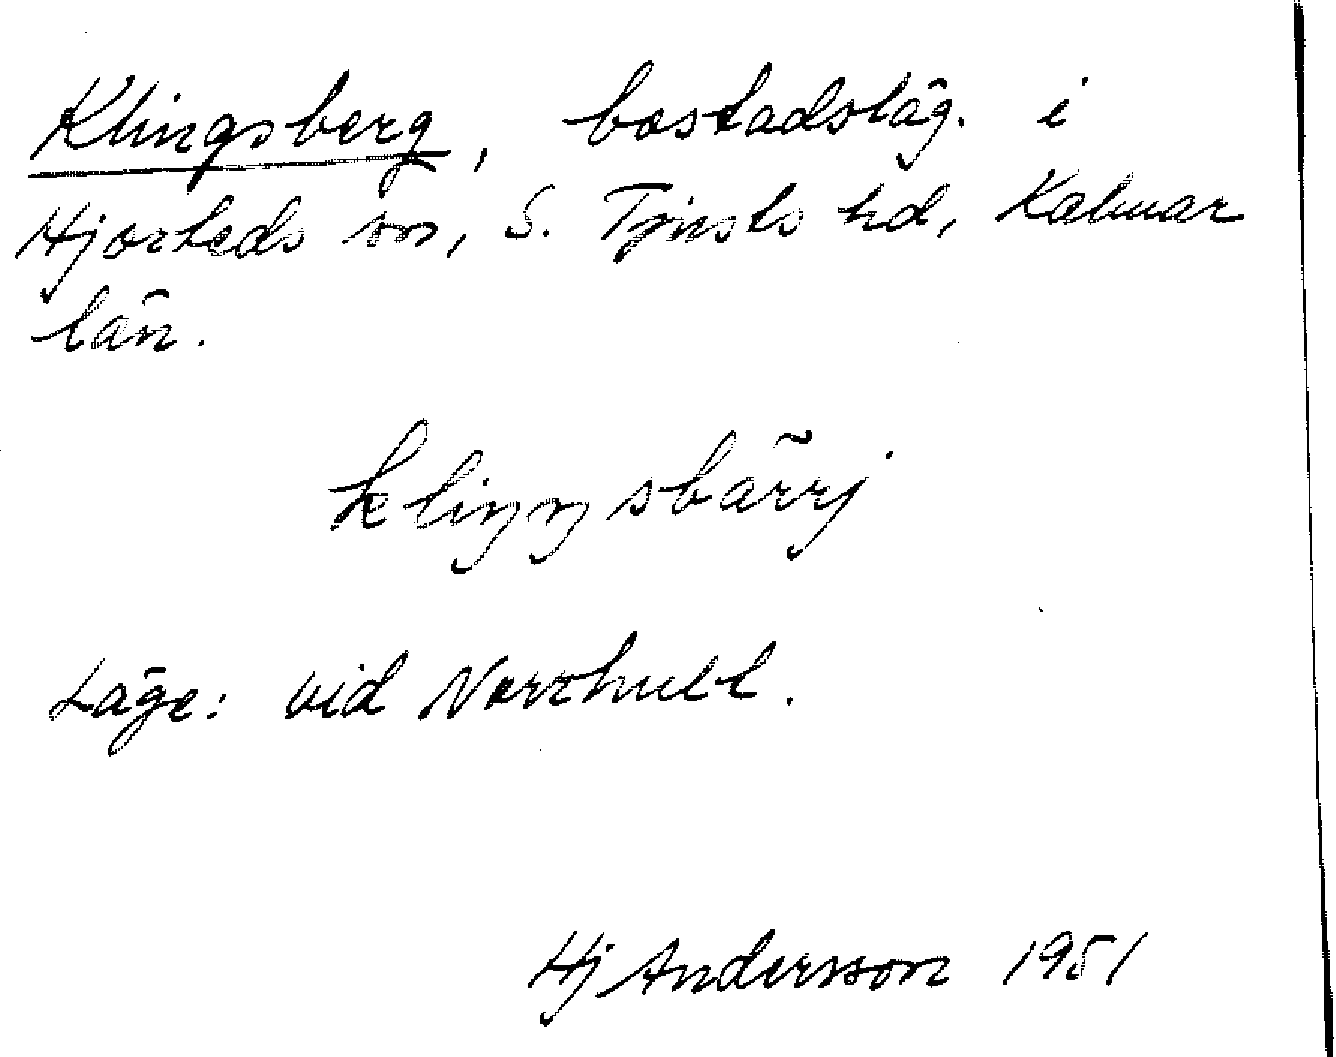 Klingsberg, bostadsläg. i
Hjorteds sn, S. Tjusts hd, Kalmar
län.
kliŋŋsbärrj
Läge: vid Norrhult.
Hj Andersson 1951